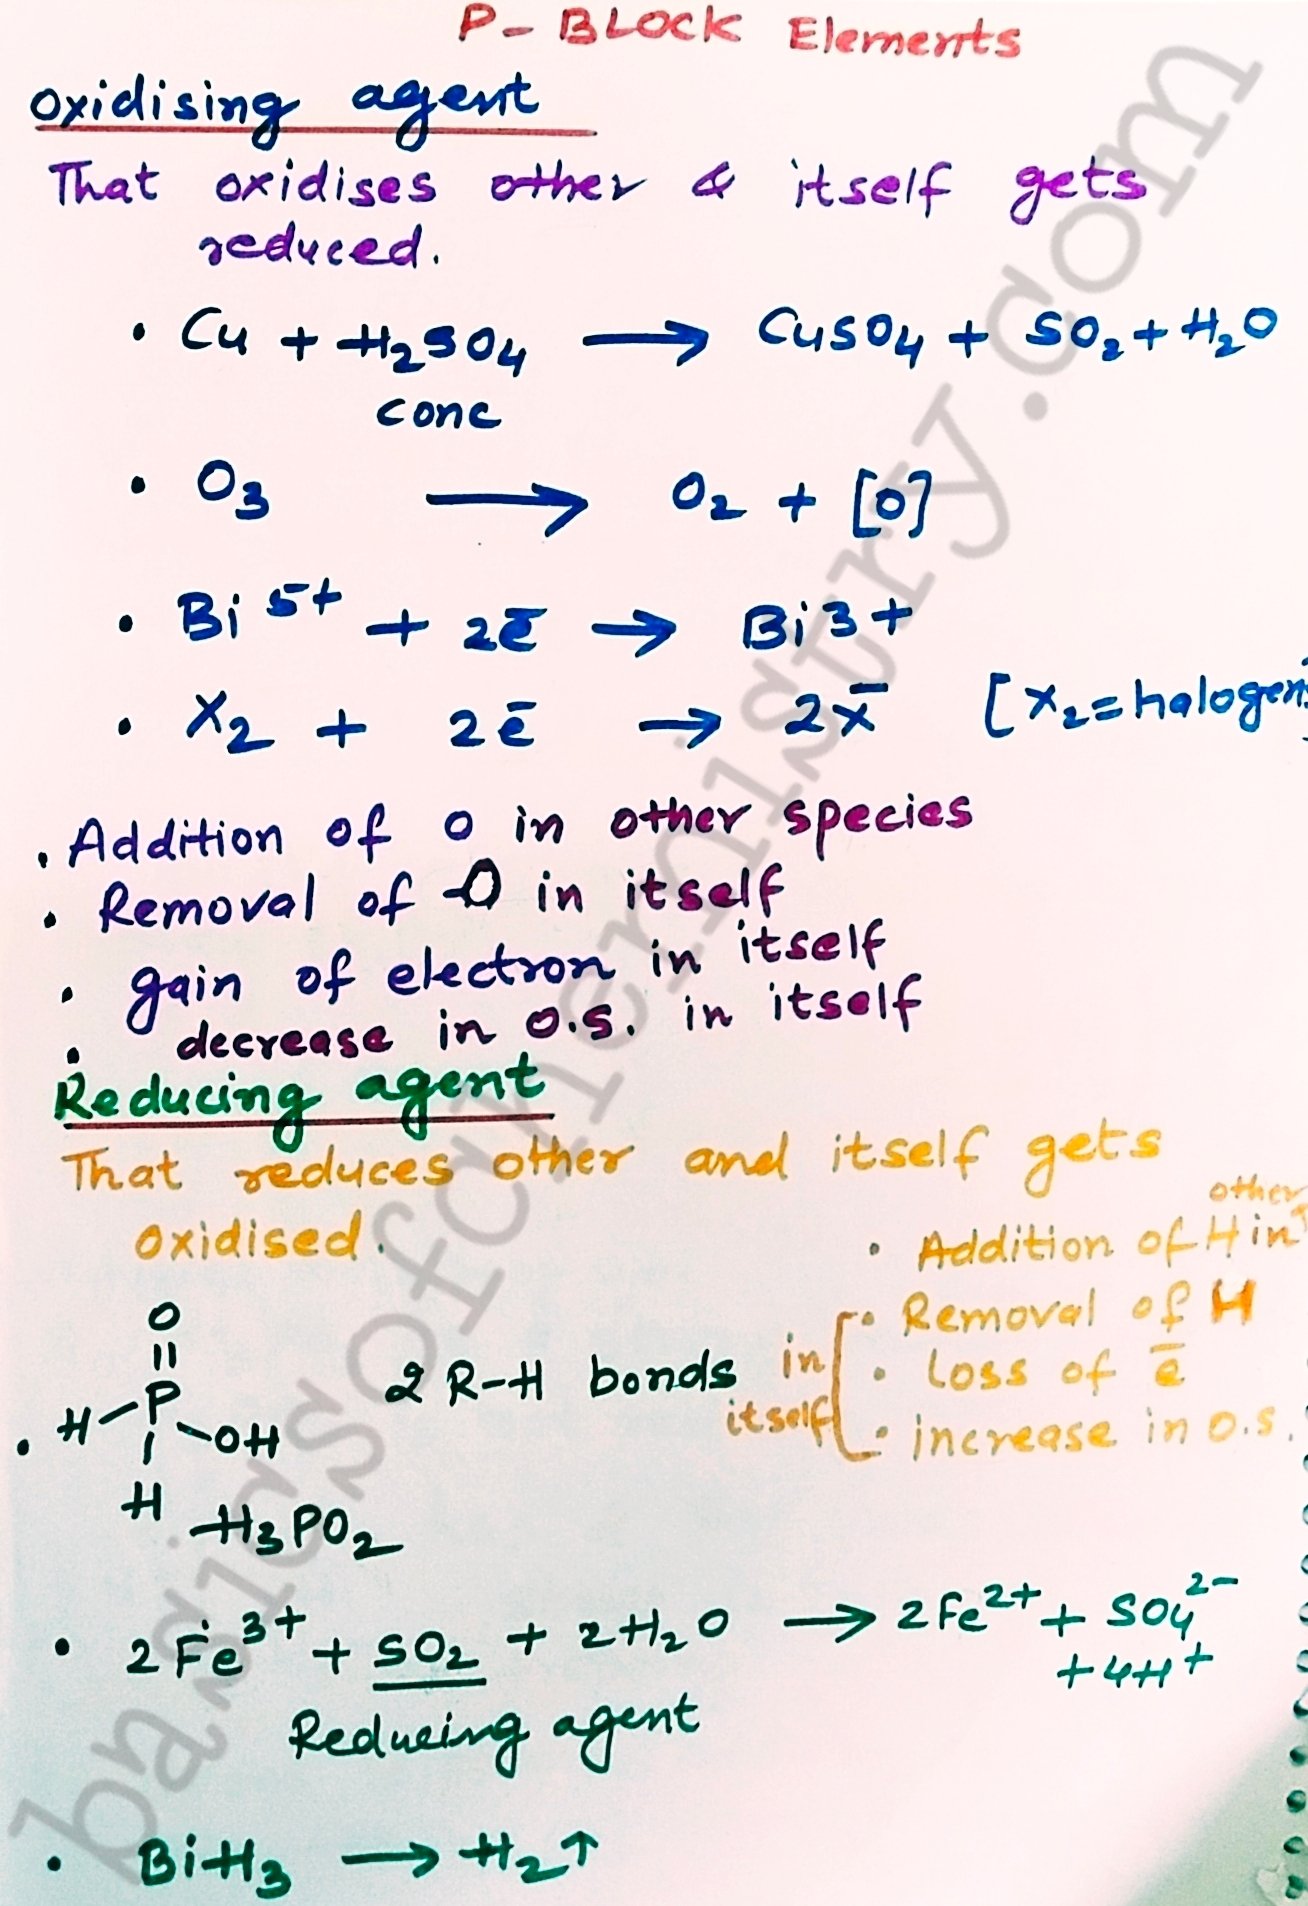 P-BLOCK Elements
Oxidising agent
That oxidises other & itself gets
reduced.
• Cu + H₂SO₄ ⟶ CuSO₄ + SO₂ + H₂O
conc
• O₃ ⟶ O₂ + [O]
• Bi⁵⁺ + 2e̅ → Bi3+
• X₂ + 2e̅ → 2x̅ [X₂=halogen]
• Addition of O in other species
• Removal of O in itself
• gain of electron in itself
• decrease in O.S. in itself
Reducing agent
That reduces other and itself gets
oxidised.
other
• Addition of H in
• Removal of H
• Loss of e̅
• increase in O.S.
in
itself
O
||
H-P-OH
H
2 R-H bonds
H₃PO₂
• 2Fe³⁺ + SO₂ + 2H₂O ⟶ 2Fe²⁺ + SO₄²⁻
+ 4H⁺
Reducing agent
• BiH₃ ⟶ H₂↑
basicsofchemistry.com